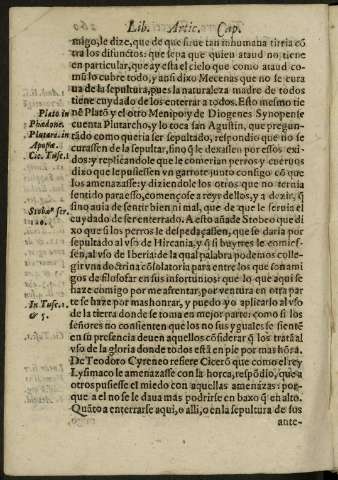 Lib. Artic. Cap.
migo, le dize, que de que sirue tan inhumana tirria cõ
tra los difunctos: que sepa que quien ataud no tiene
en particular, que ay està el cielo que como ataud co-
mũ lo cubre todo, y ansi dixo Mecenas que no se cura
ua de la sepultura, pues la naturaleza madre de todos
tiene cuydado de los enterrar a todos. Esto mesmo tie
Plato in
nẽ Platõ y el otro Menipo y de Diogenes Synopense
Phædone.
cuenta Plutarcho, y lo toca san Agustin, que pregun-
Plutarc. in
tado como queria ser sepultado, respondio que no se
Apoph.
curassen de lo sepultar, sino q̃ le dexassen por essos exi-
Cic. Tusc. 1
dos: y replicandole que le comerian perros y cueruos
dixo que le pusiessen vn garrote junto consigo cõ que
los amenazasse: y diziendole los otros que no ternia
sentido para esso, començose a reyr dellos, y a dezir, q̃
sino auia de sentir bien ni mal, que de que le seruia el
Stobæ. ser.
cuydado de ser enterrado. A esto añade Stobeo que di
120.
xo que si los perros le despedaçassen, que se daria por
sepultado al vso de Hircania, y q̃ si buytres le comies-
sen, al vso de Iberia: de la qual palabra podemos colle-
gir vna doctrina cõsolatoria para entre los que son ami
gos de filosofar en sus infortunios: que lo que aqui se
haze comigo por me afrentar, por ventura en otra par
In Tusc. 1.
te se haze por mas honrar, y puedo yo aplicarlo al vso
& 5.
de la tierra donde se toma en mejor parte: como si los
señores no consienten que los no sus yguales se sientẽ
en su presencia deuen aquellos cõsiderar q̃ los tratã al
vso de la gloria donde todos estã en pie por mas hõra.
De Teodoro Cyreneo refiere Cicerõ que como el rey
Lysimaco le amenazasse con la horca, respõdio, que a
otros pusiesse el miedo con aquellas amenazas: por-
que a el no se le daua mas podrirse en baxo q̃ en alto.
Quãto a enterrarse aqui, o alli, o en la sepultura de sus
ante-